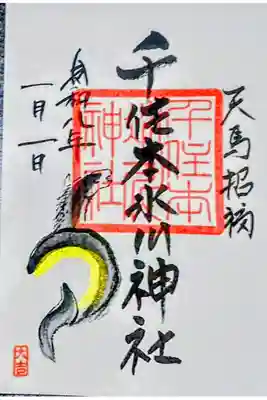 天馬招福
千住本氷川神社
令和八年
一月一日
千住本
神社